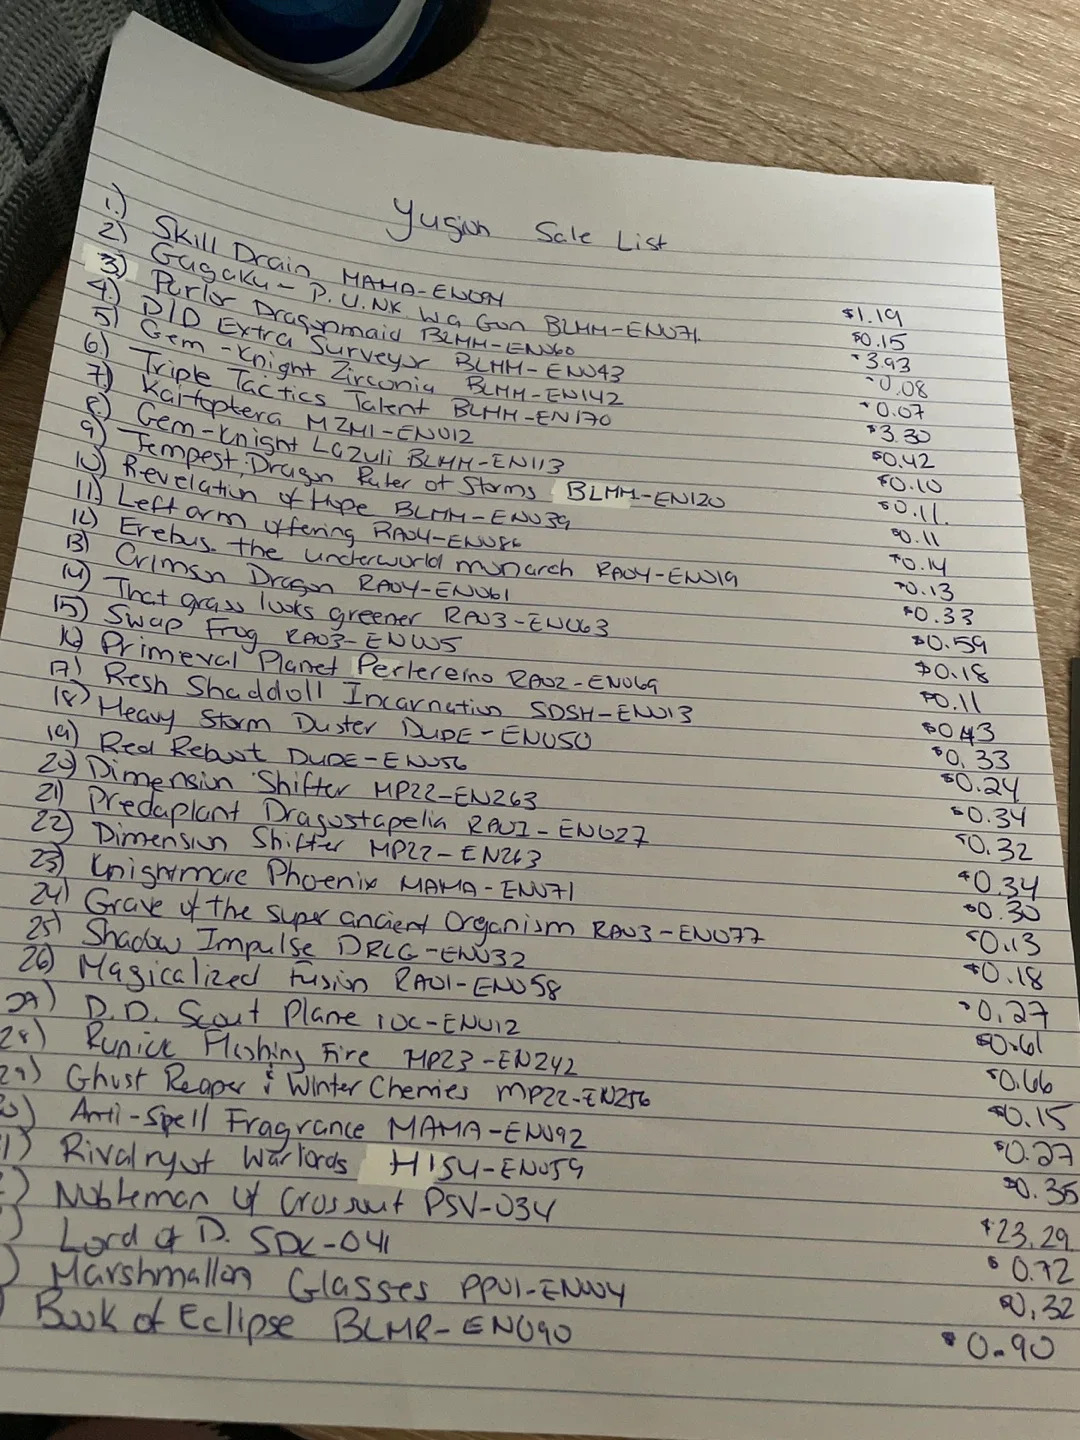 Yugioh Sale List
1.) Skill Drain MAMA-EN094 $1.19
2) Gagaku-P.U.N.K. Wa Gon BLMM-EN071. $0.15
3) Parlor Dragonmaid BLMM-EN060 $3.93
4.) D/D Extra Surveyor BLMM-EN043 $0.08
5) Gem-Knight Zirconia BLMM-EN142 $0.07
6) Triple Tactics Talent BLMM-EN170 $3.30
7) Kaitoptera MZMI-EN012 $0.42
8) Gem-Knight Lazuli BLMM-EN113 $0.10
9) Tempest, Dragon Ruler of Storms BLMM-EN120 $0.11.
10) Revelation of Hope BLMM-EN039 $0.11
11) Left arm offering RA04-EN086 $0.14
12) Erebus the underworld monarch RA04-EN019 $0.13
13) Crimson Dragon RA04-EN061 $0.33
14) That grass looks greener RA03-EN063 $0.59
15) Swap Frog RA03-EN005 $0.18
16) Primeval Planet Perlereino RA02-EN069 $0.11
17) Resh Shaddoll Incarnation SDSH-EN013 $0.43
18) Heavy Storm Duster DUPE-EN050 $0.33
19) Red Reboot DUDE-EN056 $0.24
20) Dimension Shifter MP22-EN263 $0.34
21) Predaplant Dragostapelia RA01-EN027 $0.32
22) Dimension Shifter MP22-EN263 $0.34
23) Knightmare Phoenix MAMA-EN071 $0.30
24) Grave of the super ancient Organism RA03-EN077 $0.13
25) Shadow Impulse DRLG-EN032 $0.18
26) Magicalized Fusion RA01-EN058 $0.27
27) D.D. Scout Plane IOC-EN012 $0.61
28) Runick Flashing Fire MP23-EN242 $0.66
29) Ghost Reaper & Winter Cherries MP22-EN256 $0.15
0) Anti-Spell Fragrance MAMA-EN092 $0.27
1) Rivalry of Warlords HISU-EN059 $0.35
) Nobleman of Crossout PSV-034 $23.29
) Lord of D. SDK-041 $0.72
) Marshmallon Glasses PP01-EN004 $0.32
Book of Eclipse BLMR-EN090 $0.90